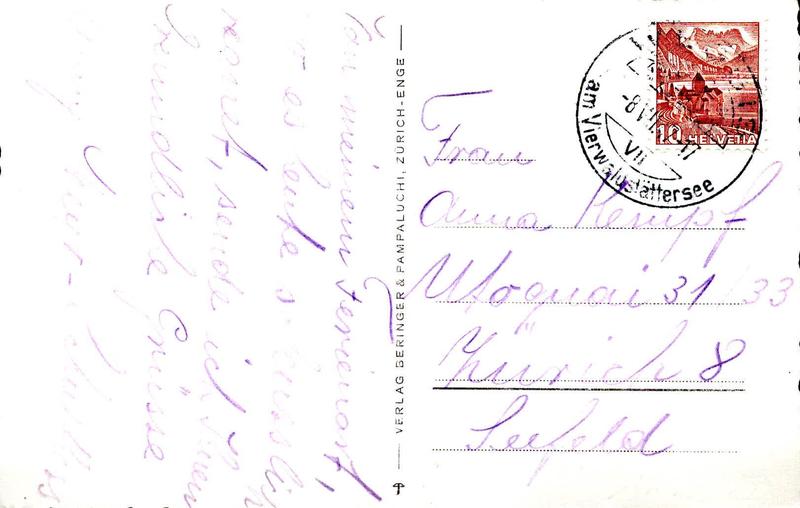 Von meinem Ferienort,
wo es heute
regnet, sende ich Ihnen
freundliche Grüsse
VERLAG BERINGER & PAMPALUCHI, ZÜRICH-ENGE
10 HELVETIA
am Vierwaldstättersee
-8.VII.
VII
17
Frau
Anna Kempf
Utoquai 31/33
Zürich 8
Seefeld